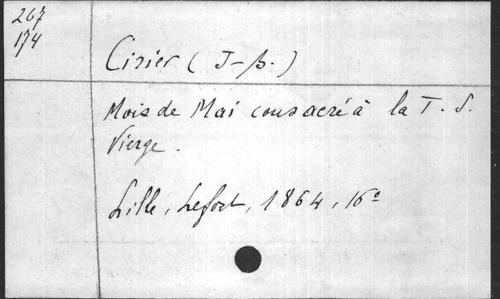 267
174
Cirier (J-B.)
Mois de Mai consacré à la T. S.
Vierge.
Lille, Lefort, 1864, 16º